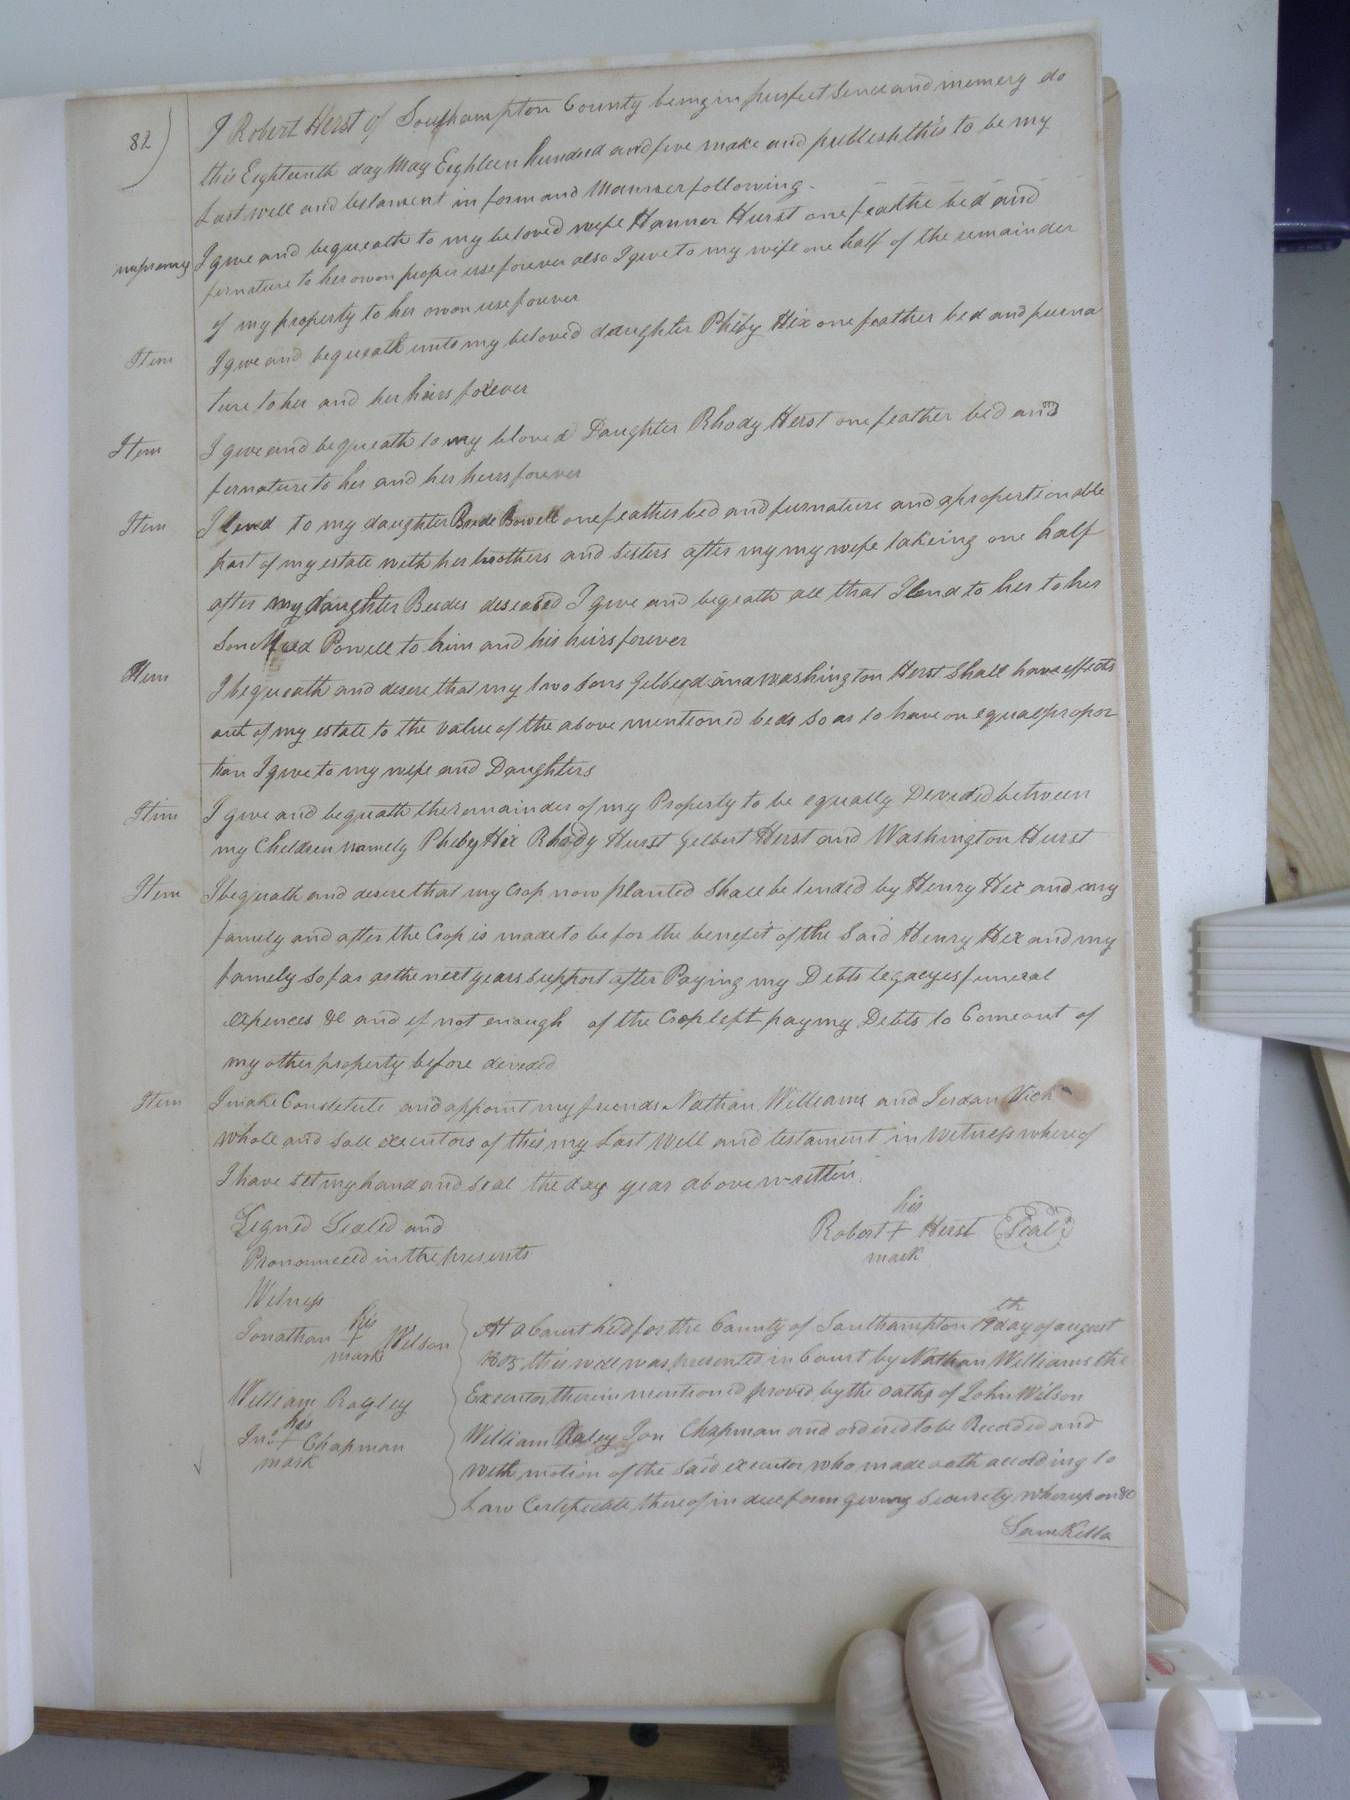 82)
I Robert Herst of Southampton County being in perfect Sence and memery do
this Eighteenth day May Eighteen hundred and five make and publesh this to be my
Last well and testament in form and Manner following.
impremey I give and bequeath to my beloved wife Hanner Hurst one feathe bed and
furnature to her own proper use forever also I give to my wife one half of the remainder
of my property to her own use forever
Item I give and bequeath unto my beloved daughter Pheby Hix one feather bed and furna
ture to her and her heirs forever
Item I give and bequeath to my beloved Daughter Rhody Herst one feather bed and
furnature to her and her heirs forever
Item I lend to my daughter Powell one feather bed and furnature and a propertionable
part of my estate with her brothers and Sisters after my my wife takeing one half
after my daughter Beedes deseased I give and begeath all that I lend to her to her
Son Powell to him and his heirs forever
Item I bequeath and desere that my two Sons Gelberd and washington Herst Shall have effects
out of my estate to the value of the above mentioned beds So as to have on equal propor
tion I give to my wife and Daughters
Item I give and bequath the remainder of my Property to be equally Devided between
my Cheldren namely Pheby Hix Rhody Hurst Gelbert Herst and Washington Hurst
Item I bequath and desere that my Crop now planted Shall be tended by Henry Hix and my
famely and after the Crop is made to be for the benefit of the Said Henry Hix and my
famely So far as the next years Support after Paying my Debts legacyes funeral
expences &c and if not enough of the Crop left pay my Debts to Come out of
my other property before devided
Item I make Constetute and appoint my friends Nathan Williams and Jordan Vick
whole and Sole executors of this my Last Well and testament in Witness where of
I have set my hand and Seal the day year above writtin
Segned Sealed and
Pronounced in the presents
his
Robert + Herst (Seal)
mark
Witness
his
Jonathan + Wilson
mark
William Ragley
his
Jno. + Chapman
mark
At a Court held for the County of Southampton 19th day of august
1805 this well was presented in Court by Nathan Williams the
Executor therein mentioned proved by the oaths of John Wilson
William Jon Chapman and ordered to be Recorded and
with motion of the Said executor who made oath according to
Law Certeficate thereof in due form geving Security whereupon &c
Sam Kello